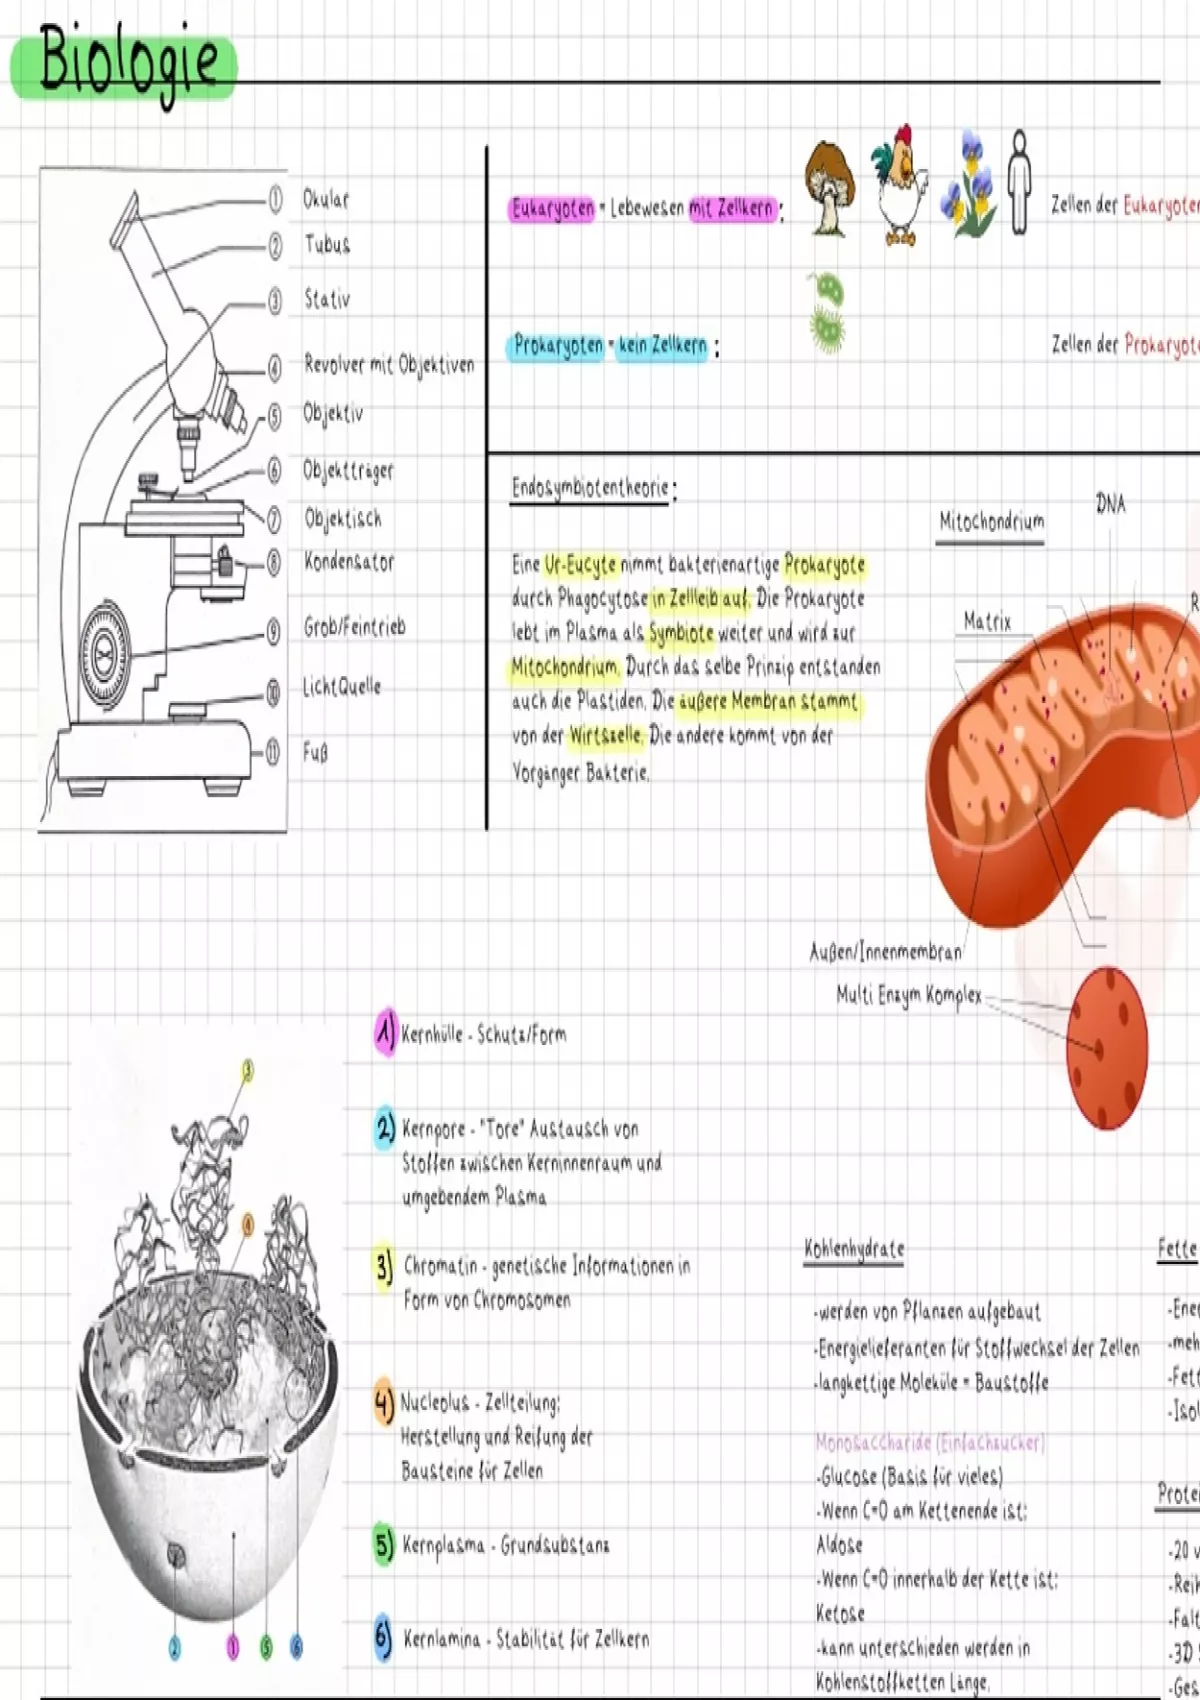 Biologie
① Okular
② Tubus
③ Stativ
④ Revolver mit Objektiven
⑤ Objektiv
⑥ Objektträger
⑦ Objektisch
⑧ Kondensator
⑨ Grob/Feintrieb
⑩ LichtQuelle
⑪ Fuß
Eukaryoten = Lebewesen mit Zellkern:
Zellen der Eukaryoten
Prokaryoten = kein Zellkern:
Zellen der Prokaryote
Endosymbiotentheorie:
Eine Ur-Eucyte nimmt bakterienartige Prokaryote
durch Phagocytose in Zellleib auf. Die Prokaryote
lebt im Plasma als Symbiote weiter und wird zur
Mitochondrium. Durch das selbe Prinzip entstanden
auch die Plastiden. Die äußere Membran stammt
von der Wirtszelle. Die andere kommt von der
Vorgänger Bakterie.
Mitochondrium
DNA
Matrix
R
Außen/Innenmembran
Multi Enzym Komplex
1) Kernhülle - Schutz/Form
2) Kernpore - "Tore" Austausch von
Stoffen zwischen Kerninnenraum und
umgebendem Plasma
3) Chromatin - genetische Informationen in
Form von Chromosomen
4) Nucleolus - Zellteilung:
Herstellung und Reifung der
Bausteine für Zellen
5) Kernplasma - Grundsubstanz
6) Kernlamina - Stabilität für Zellkern
③
④
② ① ⑤ ⑥
Kohlenhydrate
-werden von Pflanzen aufgebaut
-Energielieferanten für Stoffwechsel der Zellen
-langkettige Moleküle = Baustoffe
Monosaccharide (Einfachzucker)
-Glucose (Basis für vieles)
-Wenn C=O am Kettenende ist:
Aldose
-Wenn C=O innerhalb der Kette ist:
Ketose
-kann unterschieden werden in
Kohlenstoffketten Länge.
Fette
-Ener
-meh
-Fett
-Isol
Protei
-20 v
-Reih
-Falt
-3D
-Ges